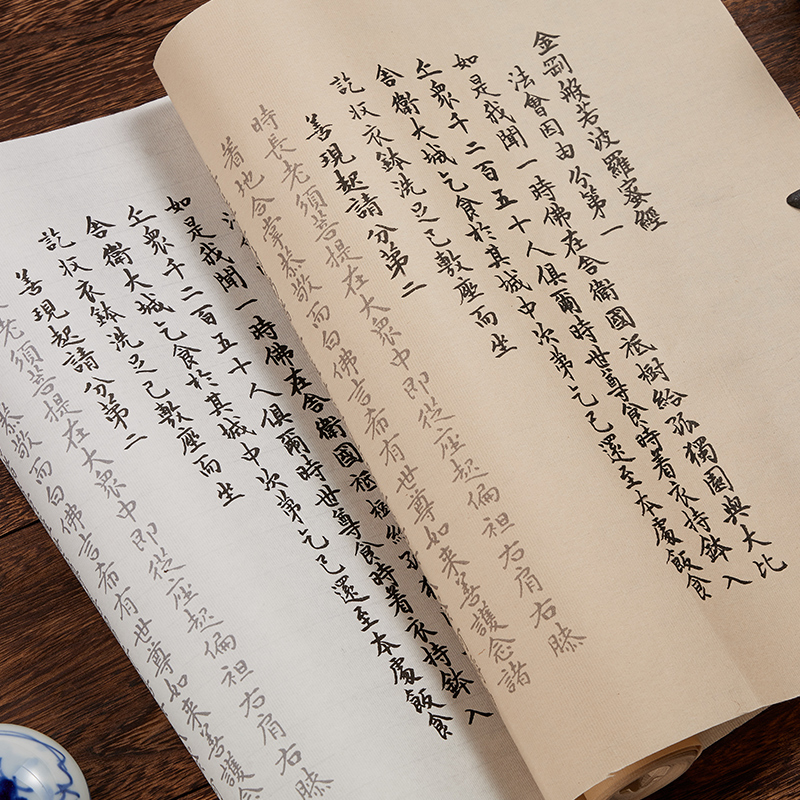 金剛般若波羅蜜經
法會因由分第一
如是我聞一時佛在舍衛國祇樹給孤獨園與大比
丘眾千二百五十人俱爾時世尊食時着衣持鉢入
舍衛大城乞食於其城中次第乞已還至本處飯食
訖收衣鉢洗足已敷座而坐
善現起請分第二
時長老須菩提在大眾中即從座起偏袒右肩右膝
着地合掌恭敬而白佛言希有世尊如来善護念諸
如是我聞一時佛在舍衛國祇樹給孤
丘眾千二百五十人俱爾時世尊食時着衣持鉢入
舍衛大城乞食於其城中次第乞已還至本處飯食
訖收衣鉢洗足已敷座而坐
善現起請分第二
老須菩提在大眾中即從座起偏袒右肩右膝
恭敬而白佛言希有世尊如来善護念